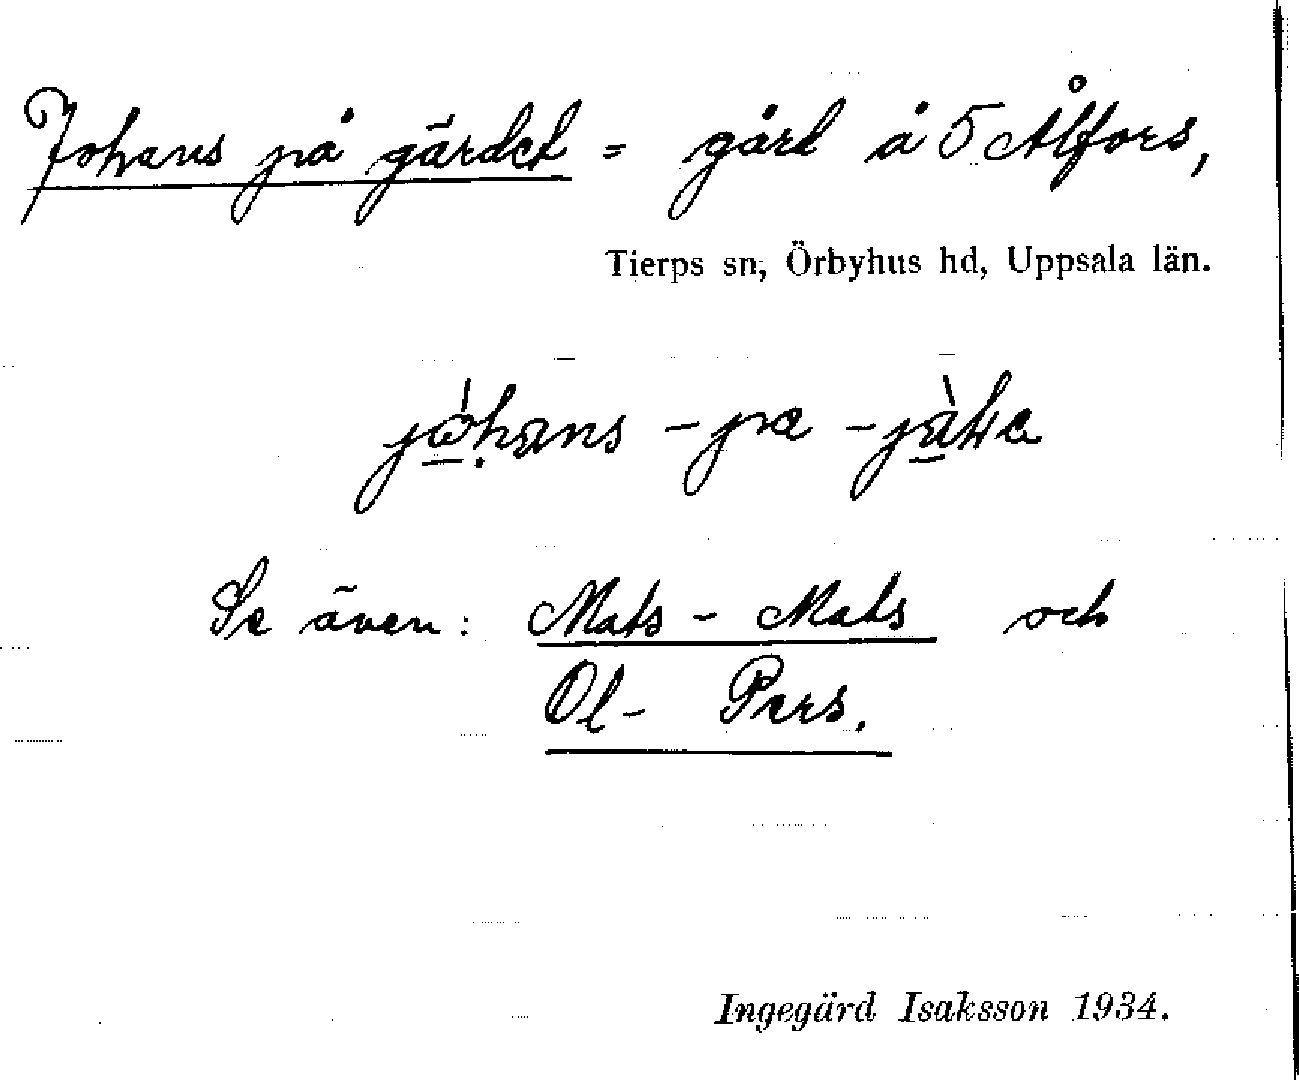 Johans på gärdet = gård å 5 Ålfors,
Tierps sn, Örbyhus hd, Uppsala län.
Se även: Mats - Mats och
Ol- Pers.
Ingegärd Isaksson 1934.